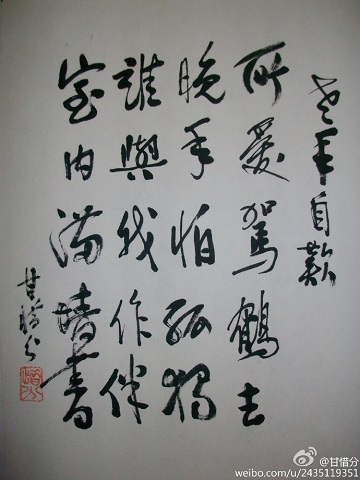 老年自叹
所爱驾鹤去
晚年怕孤独
誰與我作伴
室内满墙書
甘惜分
惜分
@甘惜分
weibo.com/u/2435119351